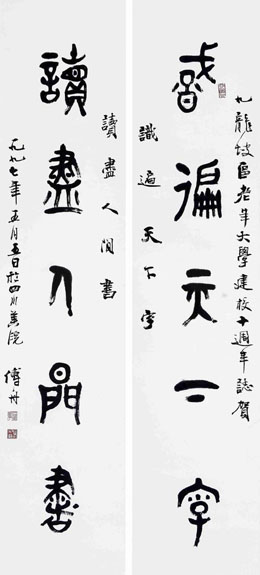 九龍坡区老年大學建校十週年誌賀
識遍天下字
識遍天下字
讀盡人间書
讀盡人間書
一九九七年五月五日於四川美院 傅舟